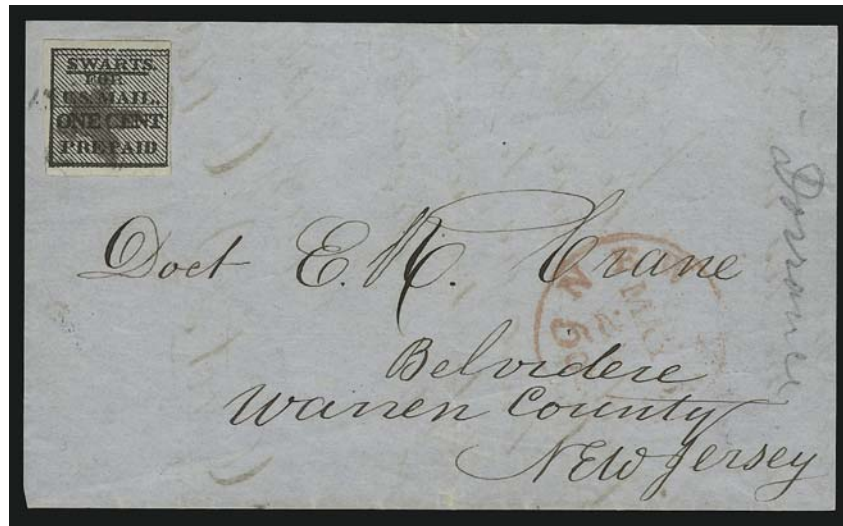 SWARTS.
FOR
U.S. MAIL.
ONE CENT
PRE-PAID
Doct E. R. Crane
Belvidere
Warren County
New Jersey